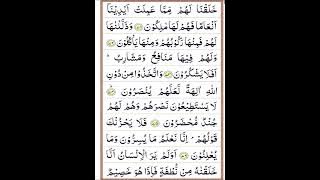 خَلَقْنَا لَهُمْ مِّمَّا عَمِلَتْ اَيْدِيْنَاۤ
اَنْعَامًا فَهُمْ لَهَا مٰلِكُوْنَ ۝ وَذَلَّلْنٰهَا
لَهُمْ فَمِنْهَا رَكُوْبُهُمْ وَمِنْهَا يَاْكُلُوْنَ ۝
وَلَهُمْ فِيْهَا مَنَافِعُ وَمَشَارِبُ ؕ
اَفَلَا يَشْكُرُوْنَ ۝ وَاتَّخَذُوْا مِنْ دُوْنِ
اللّٰهِ اٰلِهَةً لَّعَلَّهُمْ يُنْصَرُوْنَ ۝
لَا يَسْتَطِيْعُوْنَ نَصْرَهُمْ وَهُمْ لَهُمْ
جُنْدٌ مُّحْضَرُوْنَ ۝ فَلَا يَحْزُنْكَ
قَوْلُهُمْ ۘ اِنَّا نَعْلَمُ مَا يُسِرُّوْنَ وَمَا
يُعْلِنُوْنَ ۝ اَوَلَمْ يَرَ الْاِنْسَانُ اَنَّا
خَلَقْنٰهُ مِنْ نُّطْفَةٍ فَاِذَا هُوَ خَصِيْمٌ